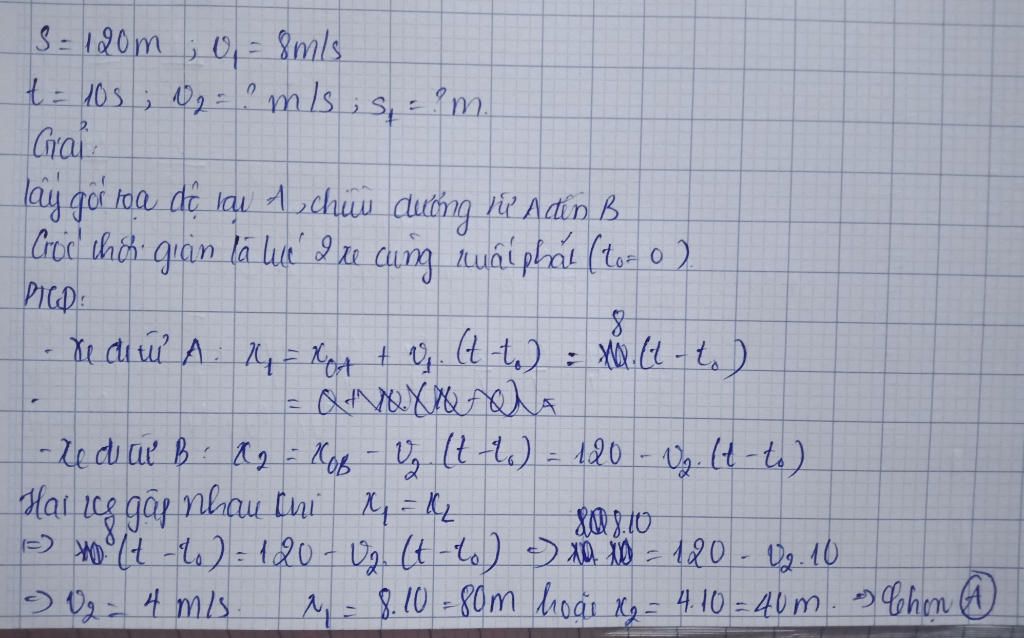 S = 120m ; v₁ = 8m/s
t = 10s ; v₂ = ? m/s ; s₁ = ? m.
Giải:
lấy gốc tọa độ tại A, chiều dương từ A đến B
Gốc thời gian là lúc 2 xe cùng xuất phát (t₀ = 0)
PTCĐ:
- Xe đi từ A: x₁ = x₀A + v₁.(t - t₀) = 8.(t - t₀)
- Xe đi từ B: x₂ = x₀B - v₂.(t - t₀) = 120 - v₂.(t - t₀)
Hai xe gặp nhau khi x₁ = x₂
=> 8(t - t₀) = 120 - v₂.(t - t₀) => 8.10 = 120 - v₂.10
=> v₂ = 4 m/s. x₁ = 8.10 = 80m hoặc x₂ = 4.10 = 40m. => Chọn A